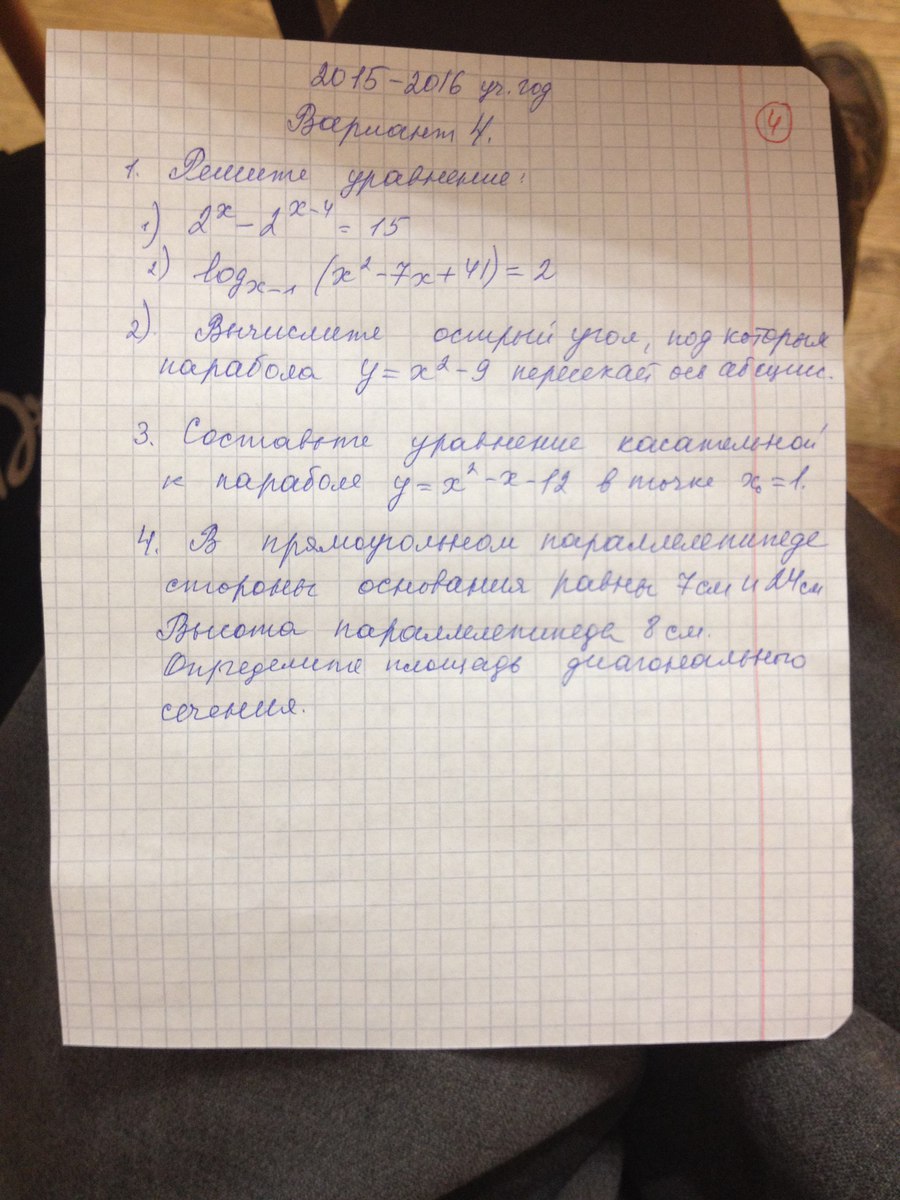 2015-2016 уч. год
Вариант 4.
4
1. Решите уравнение:
1) 2^x - 2^{x-4} = 15
2) log_{x-1} (x^2 - 7x + 41) = 2
2) Вычислите острый угол, под которым
парабола y = x^2 - 9 пересекает ось абсцисс.
3. Составьте уравнение касательной
к параболе y = x^2 - x - 12 в точке x_0 = 1.
4. В прямоугольном параллелепипеде
стороны основания равны 7 см и 24 см
Высота параллелепипеда 8 см.
Определите площадь диагонального
сечения.